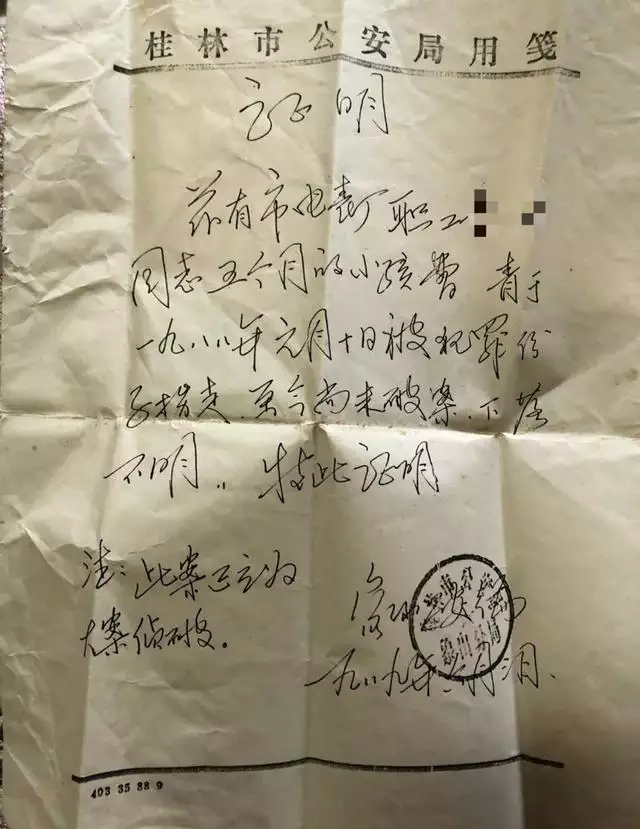 桂林市公安局用笺
证明
兹有市电表厂职工
同志五个月的小孩曹青于
一九八八年元月十日被犯罪份
子拐走，至今尚未破案，下落
不明，，特此证明
注：此案已立为
大案侦破。
一九八九年 月 日
403 35 88 9